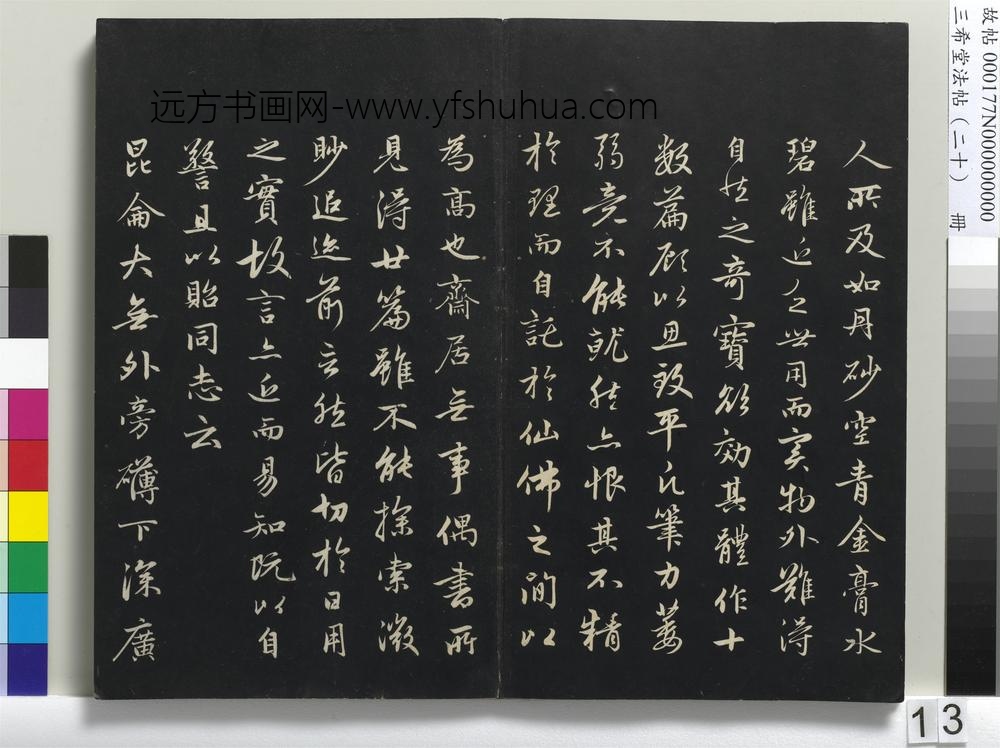 人所及如丹砂空青金膏水
碧雖近乏世用而实物外難得
自然之奇寶欲効其體作十
数篇顾以思致平凡筆力萎
弱竟不能就然亦恨其不精
於理而自託於仙佛之间以
為高也齋居無事偶書所
見得廿篇雖不能探索微
眇追迹前言然皆切於日用
之實故言亦近而易知既以自
警且以貽同志云
昆侖大無外旁礴下深廣
远方书画网-www.yfshuhua.com
故帖 000177N000000000
三希堂法帖（二十） 册
13